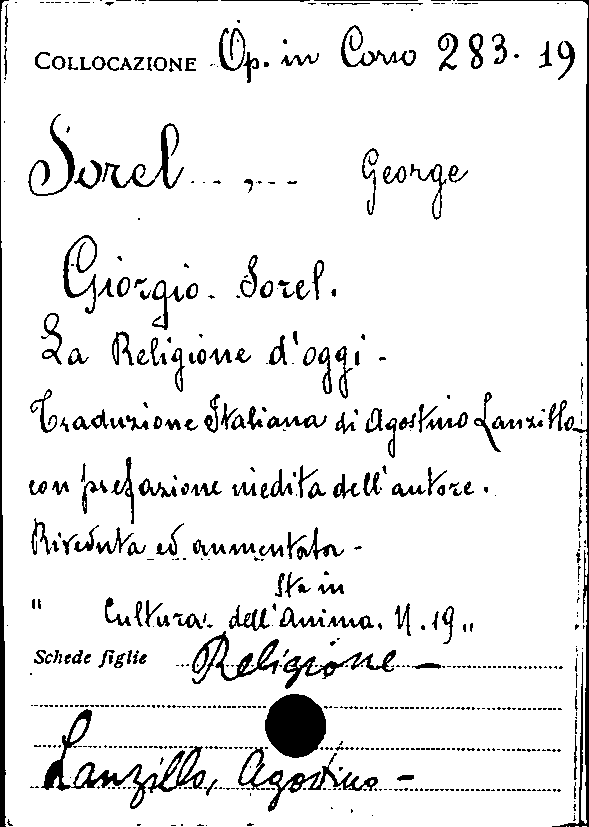 COLLOCAZIONE Op. in Corso 283. 19
Sorel , George
Giorgio. Sorel.
La Religione d'oggi -
Traduzione Italiana di Agostino Lanzillo
con prefazione inedita dell'autore.
Riveduta ed aumentata -
Sta in
" Cultura dell'Anima. N. 19 "
Schede figlie Religione -
Lanzillo, Agostino -